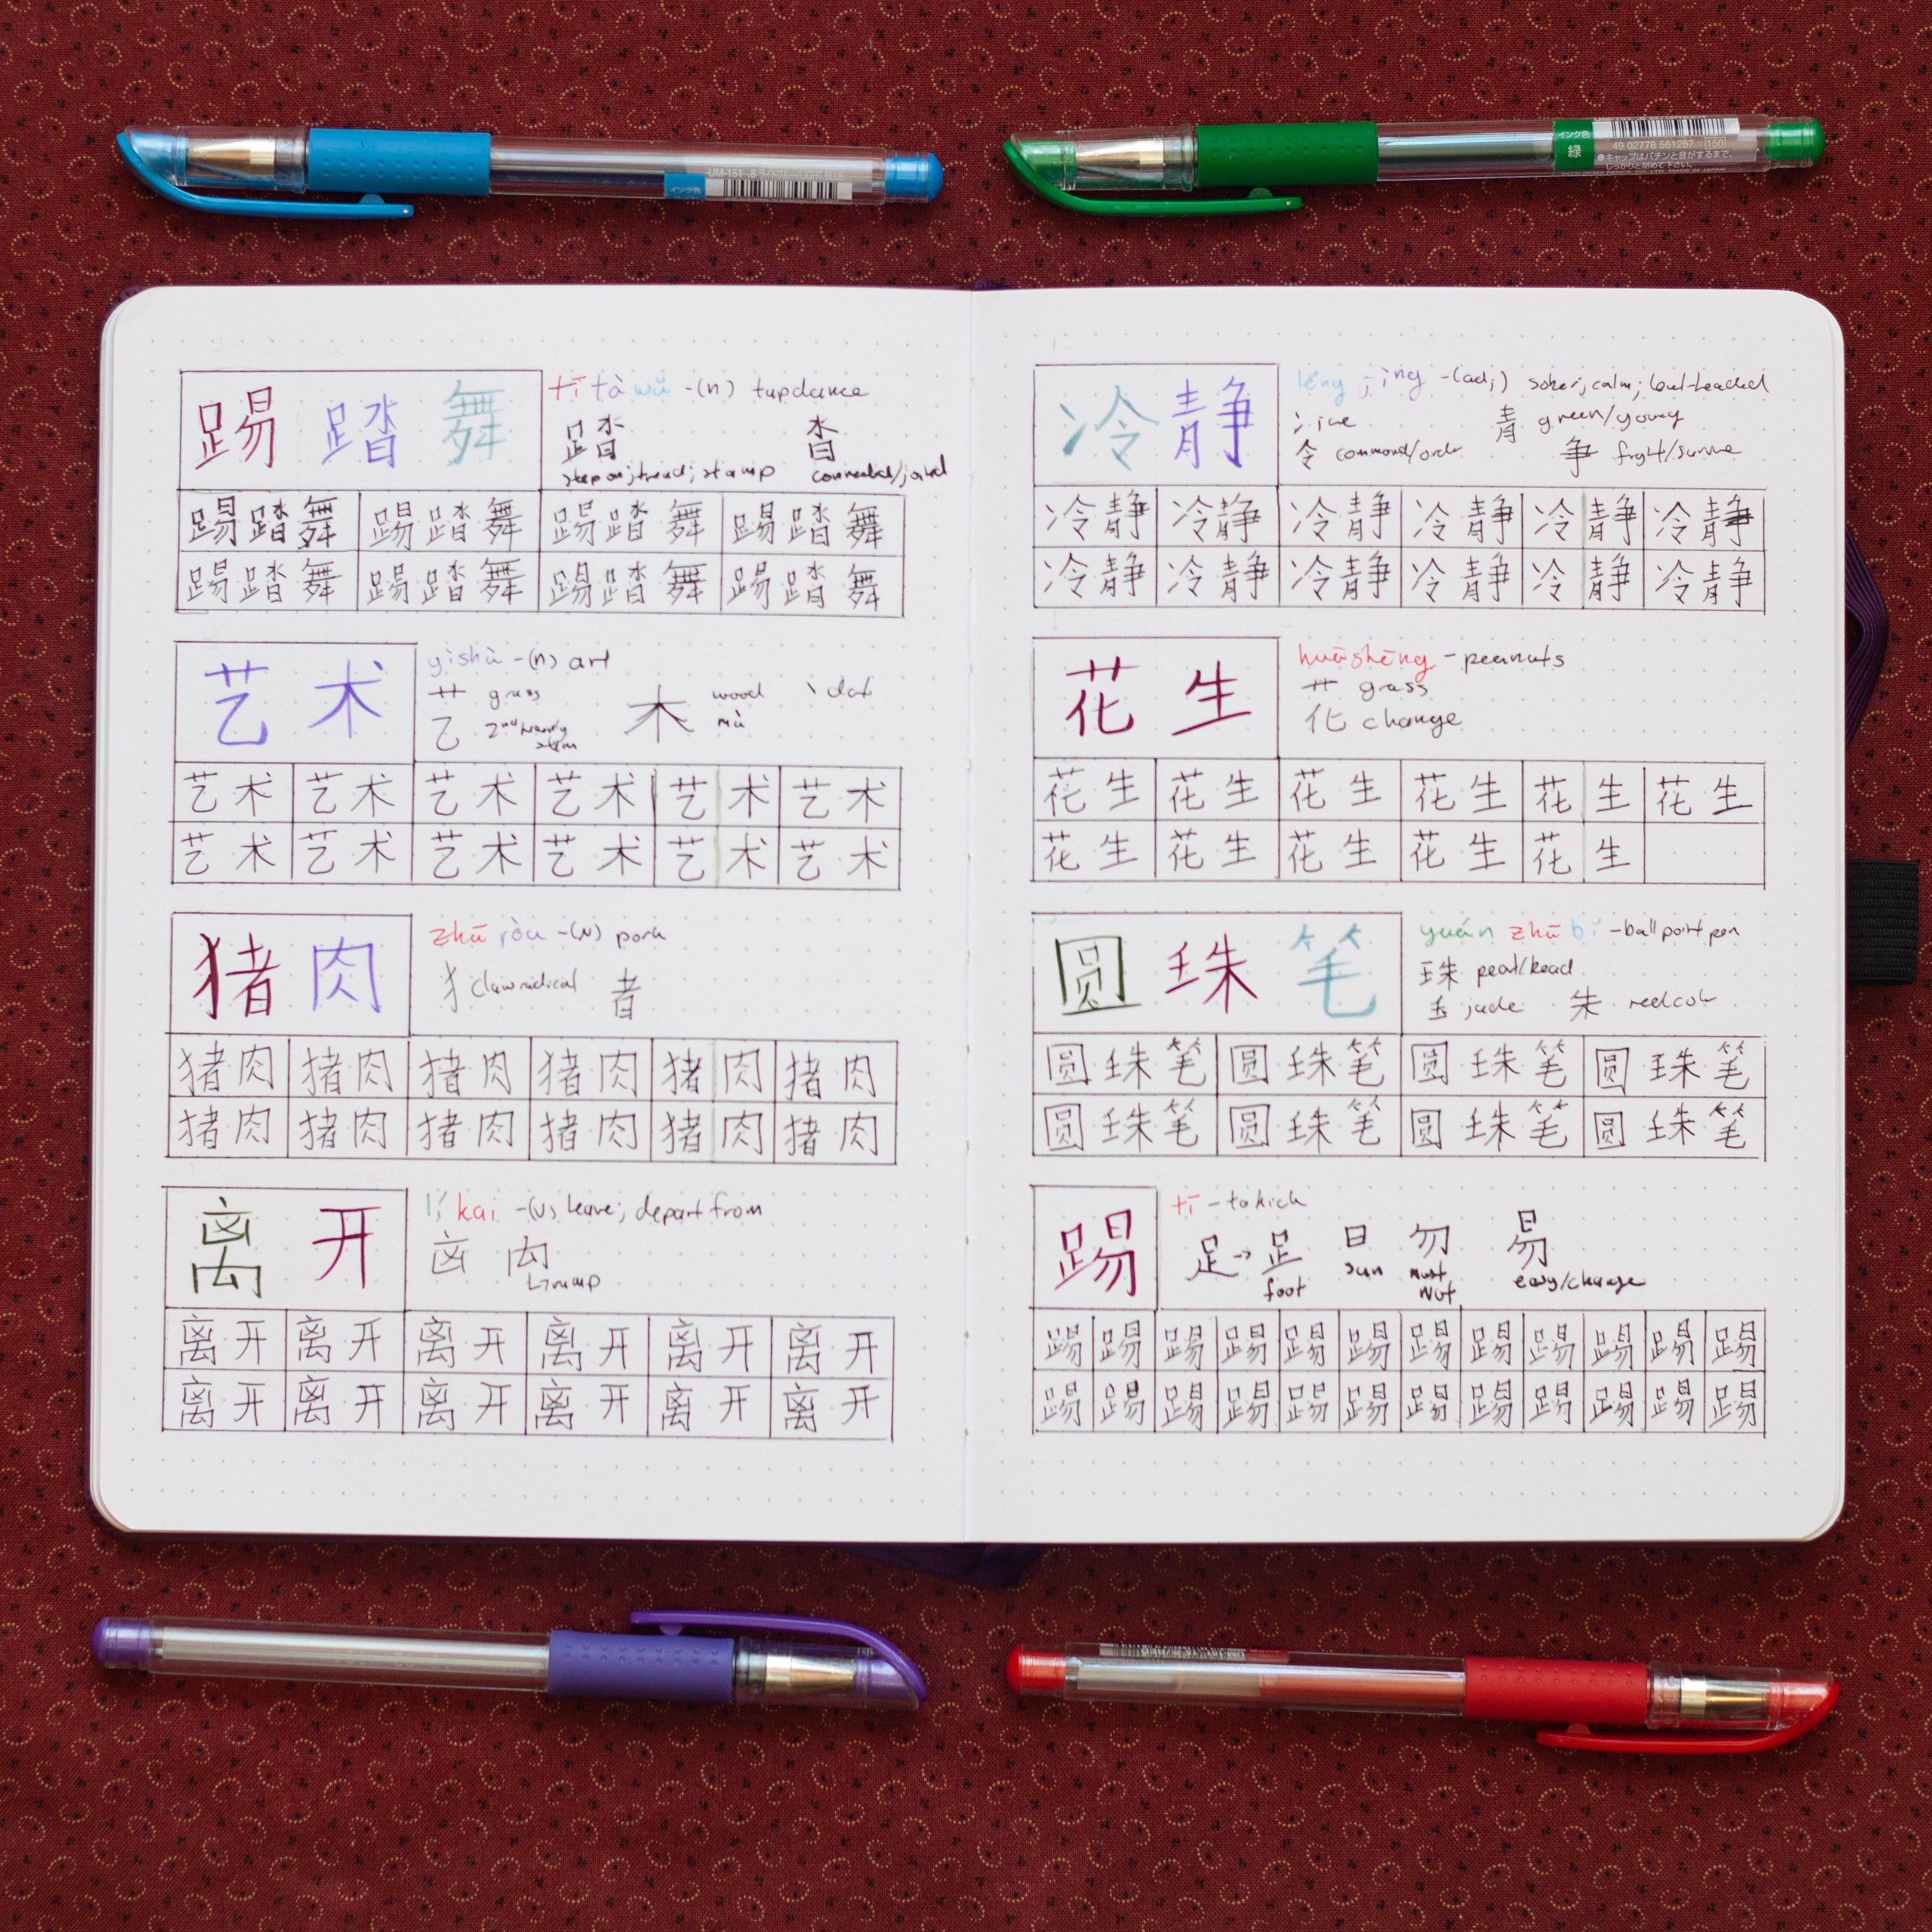 UM-151 .8 ライトブルー LIGHT BLUE
インク色
インク色
緑
49 02778 561287 [150]
●キャップはパチンと音がするまで、
しっかりと閉めて下さい。
踢踏舞
tī tà wǔ -(n) tapdance
踏 沓
step on; tread; stamp connected/joined
踢踏舞 踢踏舞 踢踏舞 踢踏舞
踢踏舞 踢踏舞 踢踏舞 踢踏舞
艺术
yìshù -(n) art
艹 grass 木 wood 丶 dot
乙 2nd heavenly stem mù
艺术 艺术 艺术 艺术 艺术 艺术
艺术 艺术 艺术 艺术 艺术 艺术
猪肉
zhū ròu -(N) pork
犭 claw radical 者
猪肉 猪肉 猪肉 猪肉 猪肉 猪肉
猪肉 猪肉 猪肉 猪肉 猪肉 猪肉
离开
lí kai -(v) leave; depart from
离开 离开 离开 离开 离开 离开
离开 离开 离开 离开 离开 离开
冷静
lěng jìng -(adj) sober; calm; level-headed
冫 ice 青 green/young
令 command/order 争 fight/
冷静 冷静 冷静 冷静 冷静 冷静
冷静 冷静 冷静 冷静 冷静 冷静
花生
huāshēng - peanuts
艹 grass
化 change
花生 花生 花生 花生 花生 花生
花生 花生 花生 花生 花生
圆珠笔
yuán zhū bǐ - ball point pen
珠 pearl/bead
玉 jade 朱
圆珠笔 圆珠笔 圆珠笔 圆珠笔
圆珠笔 圆珠笔 圆珠笔 圆珠笔
踢
tī - to kick
足 → 𧾷 日 勿 易
foot sun must not easy/change
踢 踢 踢 踢 踢 踢 踢 踢 踢 踢 踢 踢
踢 踢 踢 踢 踢 踢 踢 踢 踢 踢 踢 踢